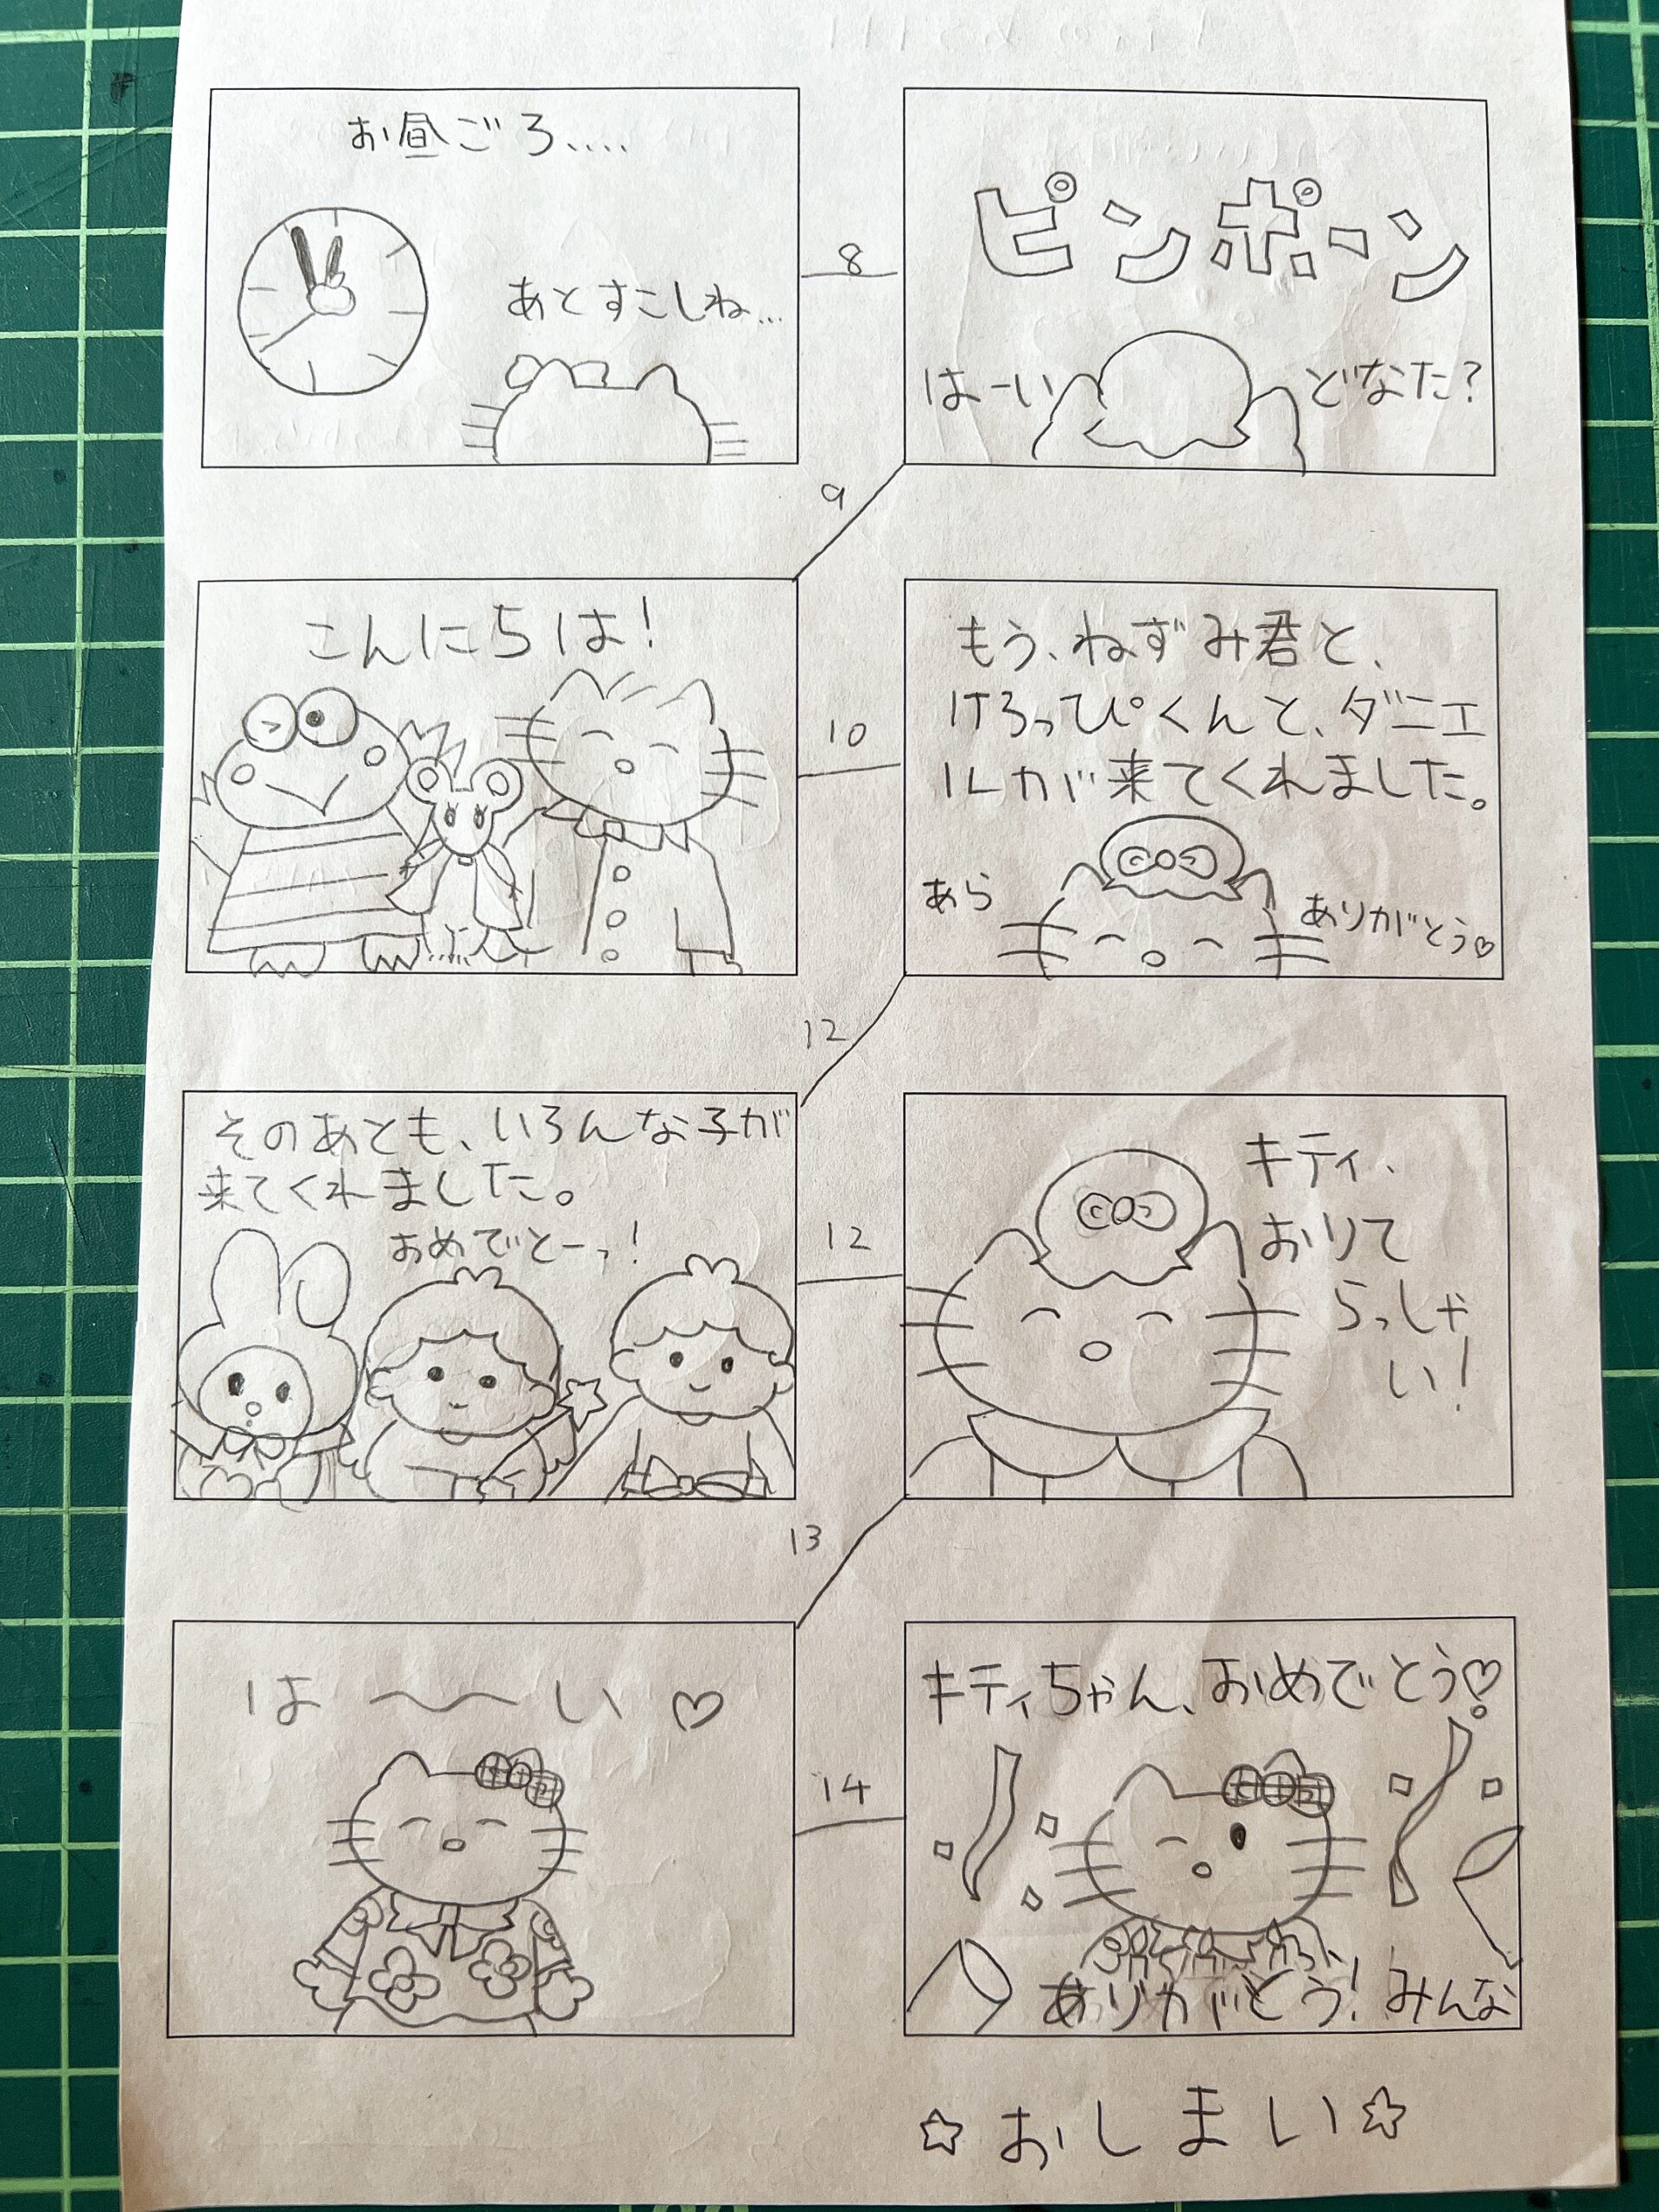 お昼ごろ....
あとすこしね...
8
ピンポーン
はーい
どなた?
9
こんにちは!
10
もう、ねずみ君と、
けろっぴくんと、ダニエ
ルが来てくれました。
あら
ありがとう♡
12
そのあとも、いろんな子が
来てくれました。
おめでとーっ!
12
キティ、
おりて
らっしゃ
い!
13
は〜〜い ♡
14
キティちゃん、おめでとう♡
ありがとう! みんな
☆おしまい☆